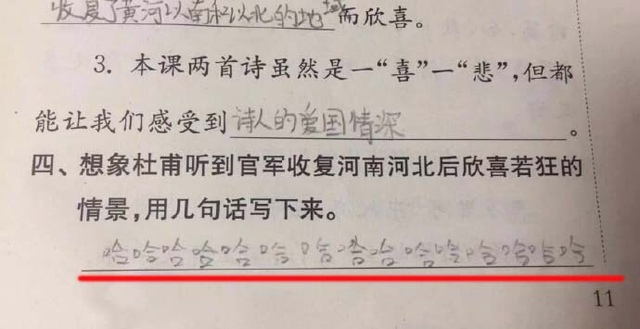 收复了黄河以南和以北的地域而欣喜。
3. 本课两首诗虽然是一“喜”一“悲”,但都
能让我们感受到诗人的爱国情深。
四、想象杜甫听到官军收复河南河北后欣喜若狂的
情景,用几句话写下来。
哈哈哈哈哈哈哈哈哈哈哈哈哈哈哈
11